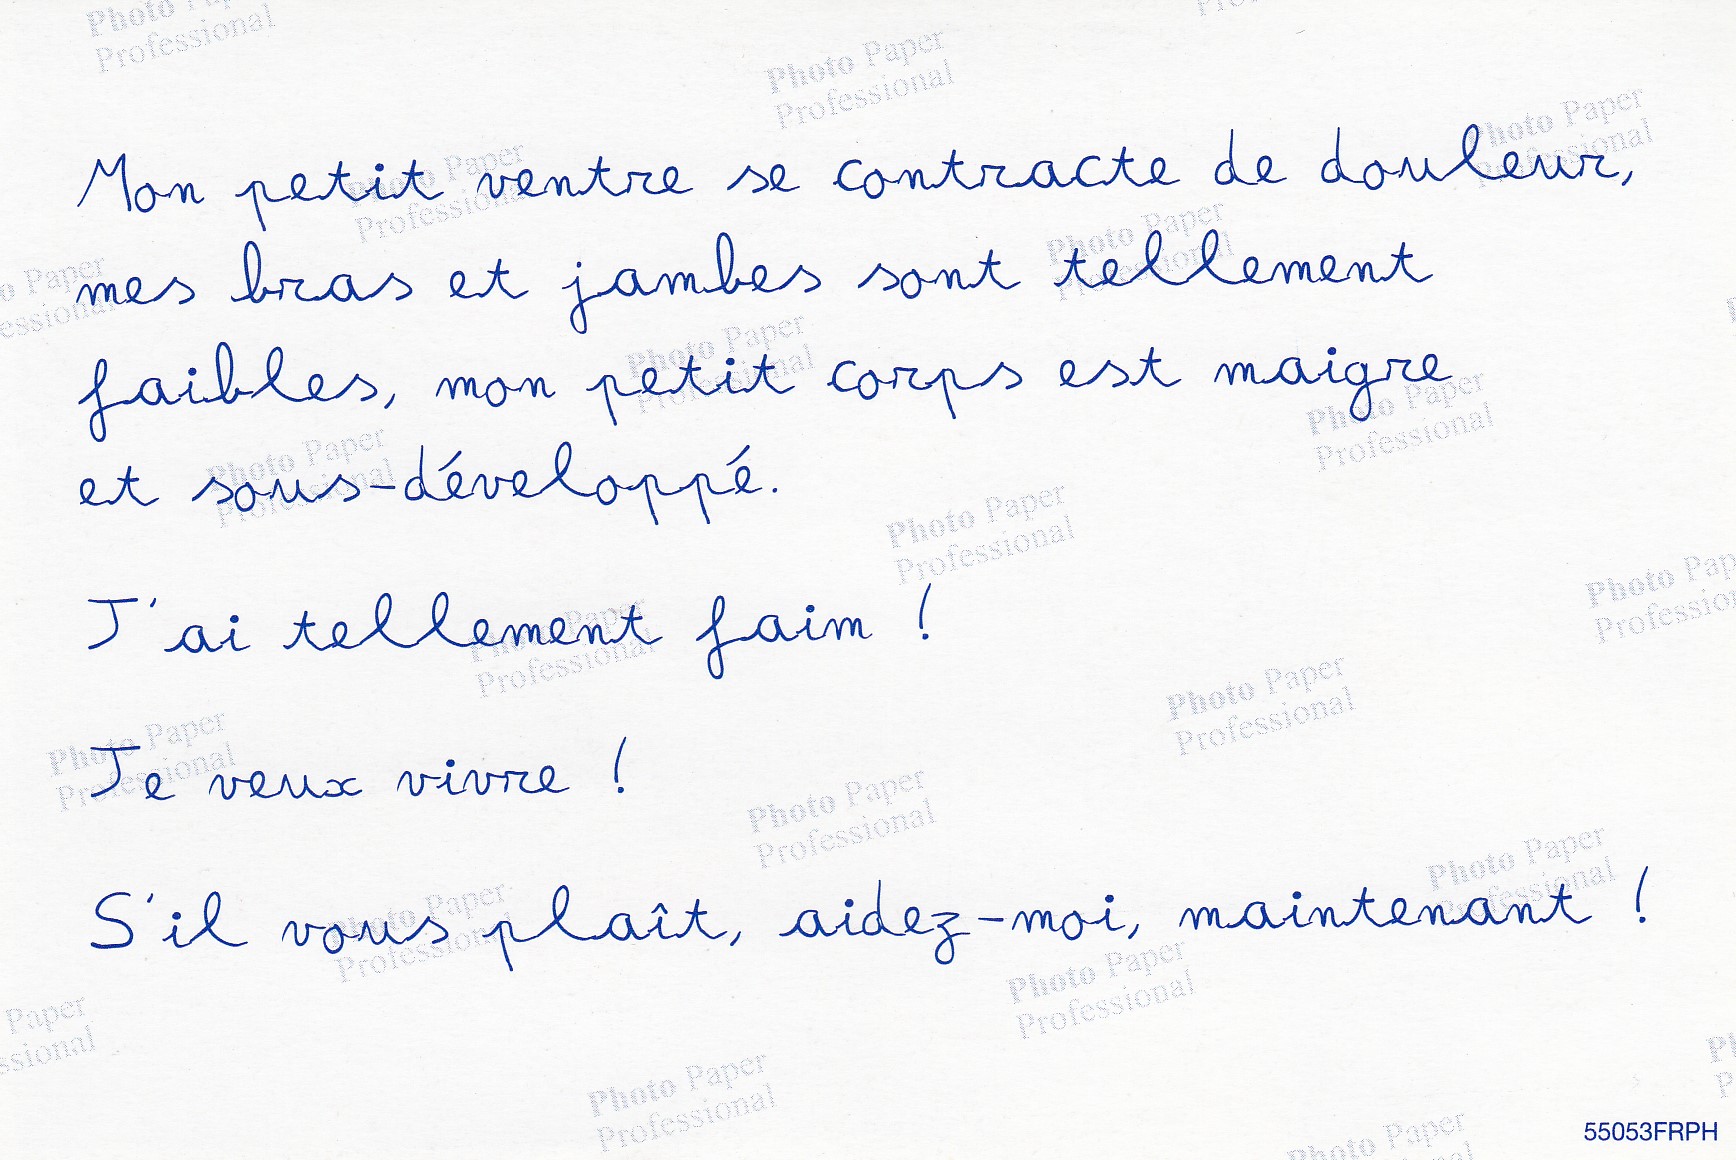 Photo Paper
Professional
Mon petit ventre se contracte de douleur,
mes bras et jambes sont tellement
faibles, mon petit corps est maigre
et sous-développé.
J'ai tellement faim !
Je veux vivre !
S'il vous plaît, aidez-moi, maintenant !
55053FRPH